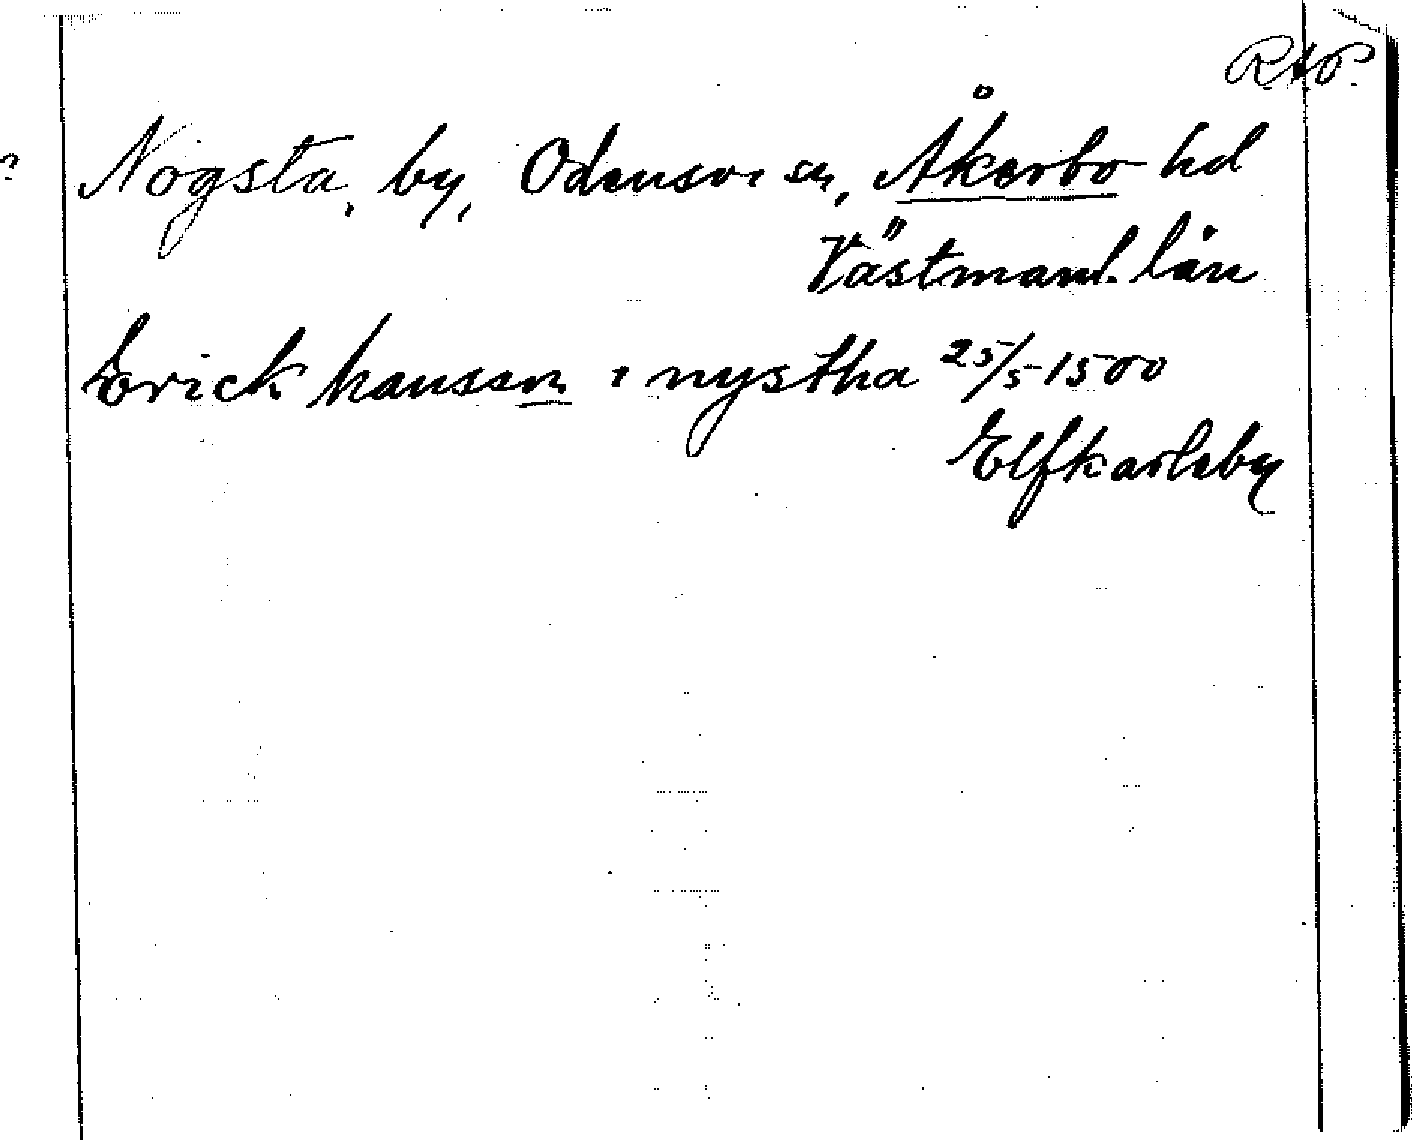 RAP.
Nögsta, by, Odensvi sn, Åkerbo hd
Västmanl. län
Erick hansson i nystha 25/5 1500
Elfkarleby